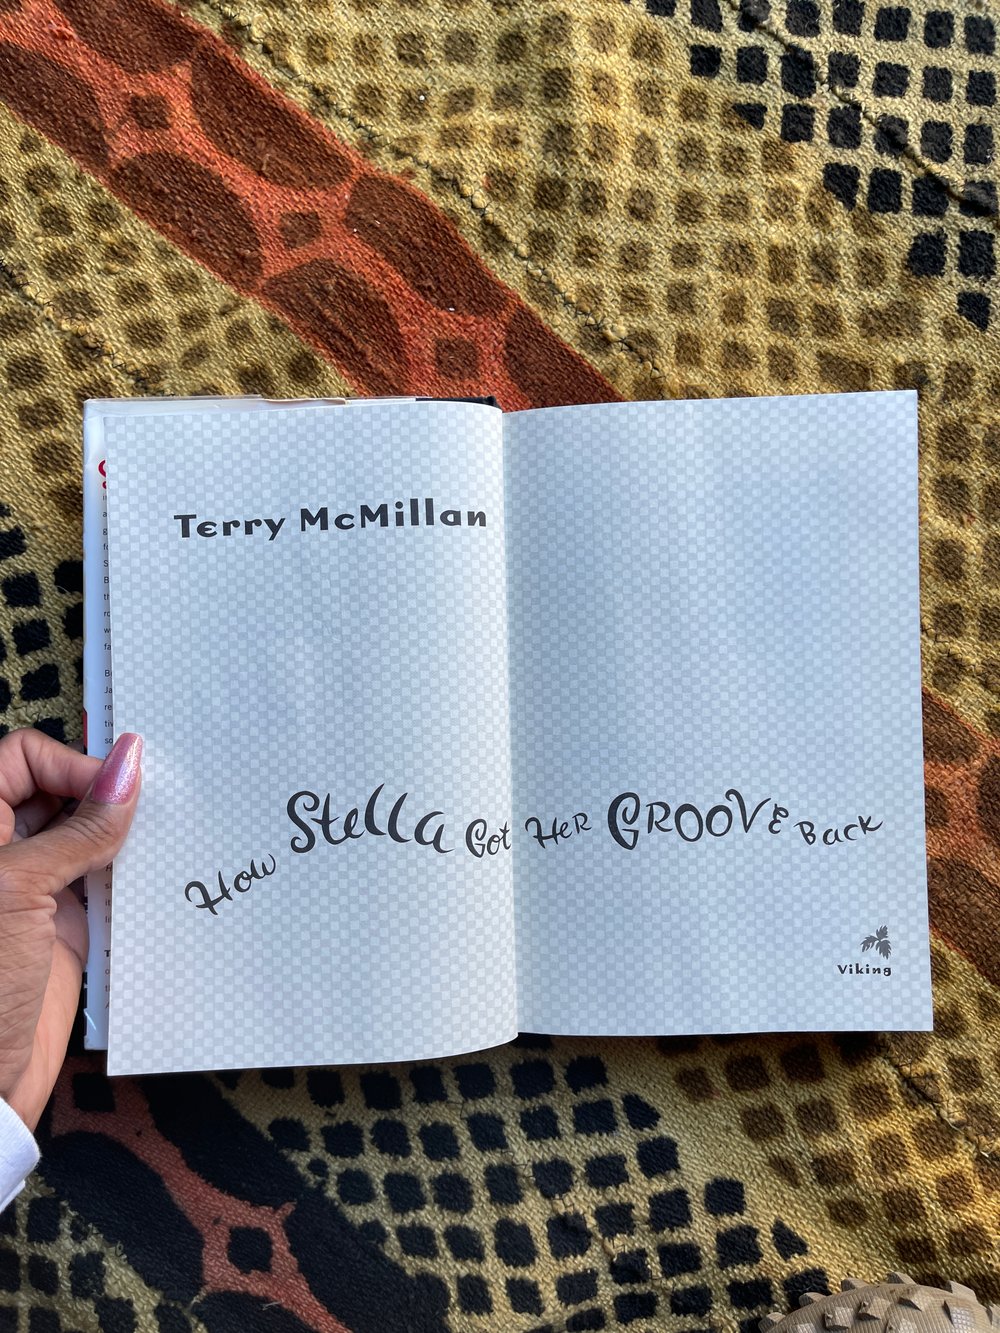 Terry McMillan
How Stella Got Her GROOVE Back
Viking